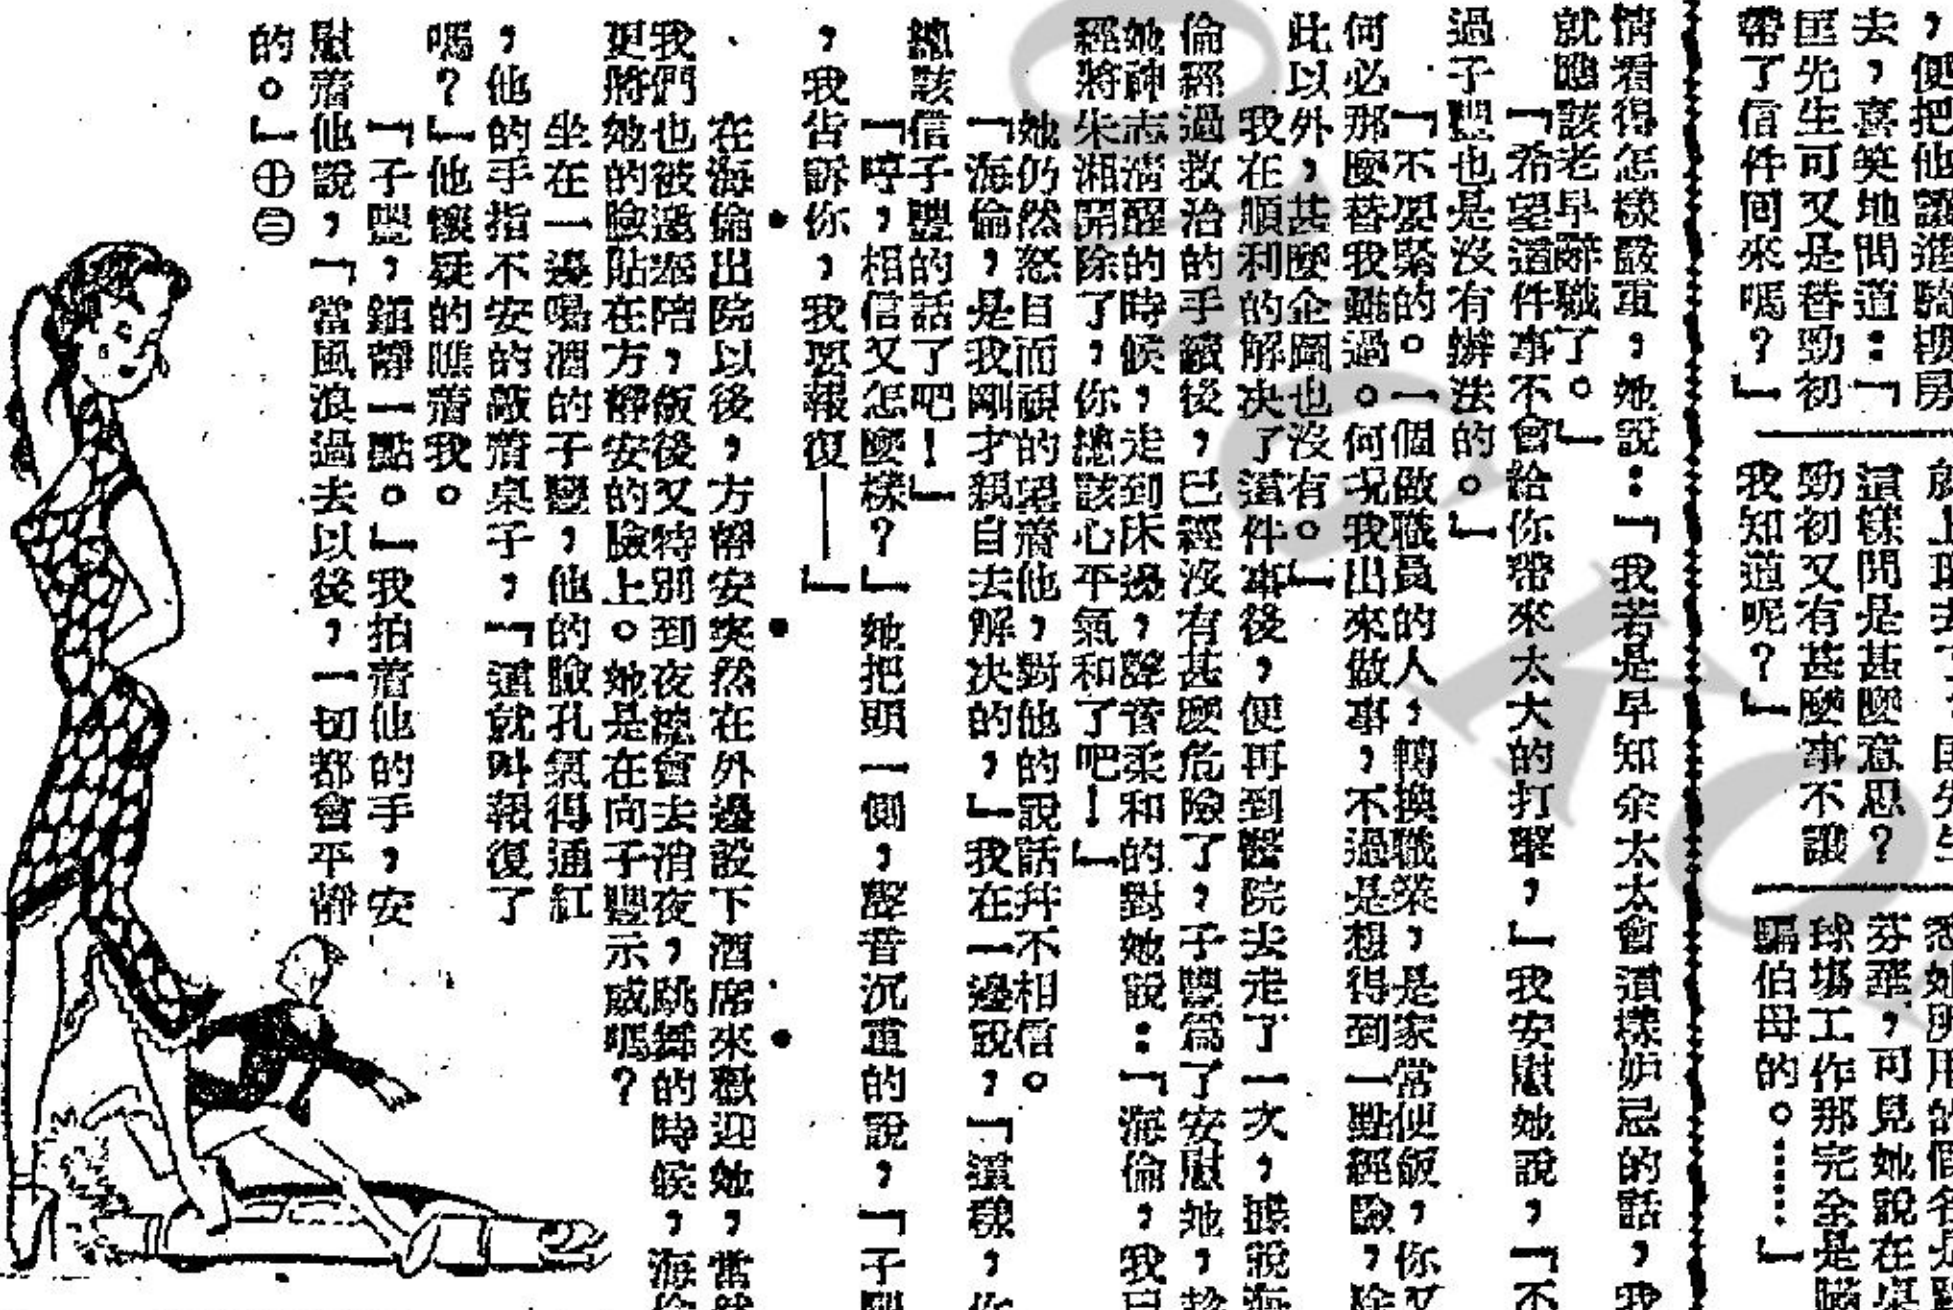 ，便把他讓進騎樓房
去，喜笑地問道：「
匡先生可又是替勁初
帶了信件回來嗎？」
這樣問是甚麼意思？
勁初又有甚麼事不讓
我知道呢？」
芬華，可見她說在桌
球塲工作那完全是瞞
騙伯母的。……」
情看得怎樣嚴重，她說：「我若是早知余太太會這樣妒忌的話，我
就應該老早辭職了。」
「希望這件事不會給你帶來太大的打擊，」我安慰她說，「不
過子豐也是沒有辦法的。」
「不要緊的。一個做職員的人，轉換職業，是家常便飯，你又
何必那麼替我難過。何況我出來做事，不過是想得到一點經驗，除
此以外，甚麼企圖也沒有。」
我在順利的解决了這件事後，便再到醫院去走了一次，據說海
倫經過救治的手續後，已經沒有甚麼危險了，子豐爲了安慰她，趁
她神志清醒的時候，走到床邊，聲音柔和的對她說：「海倫，我已
經將朱湘開除了，你總該心平氣和了吧！」
她仍然怒目而視的望着他，對他的說話幷不相信。
「海倫，是我剛才親自去解决的，」我在一邊說，「這樣，你
總該信子豐的話了吧！」
「哼，相信又怎麼樣？」她把頭一側，聲音沉重的說，「子豐
，我告訴你，我要報復——」
• • •
在海倫出院以後，方靜安突然在外邊設下酒席來歡迎她，當然
、我們也被邀奉陪，飯後又特別到夜總會去消夜，跳舞的時候，海倫
更將她的臉貼在方靜安的臉上。她是在向子豐示威嗎？
坐在一邊喝酒的子豐，他的臉孔氣得通紅
，他的手指不安的敲着桌子，「這就叫報復了
嗎？」他懷疑的瞧着我。
「子豐，鎮靜一點。」我拍着他的手，安
慰着他說，「當風浪過去以後，一切都會平靜
的。」㊉㊂